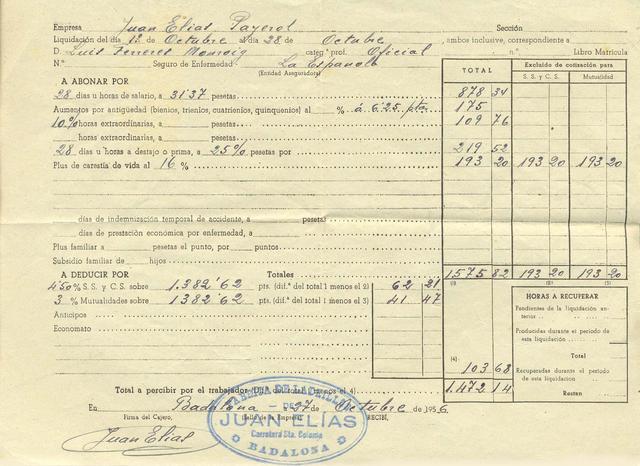 Empresa Juan Elías Payerol Sección
Liquidación del día 1º de Octubre al día 28 de Octubre, ambos inclusive, correspondiente a
D. Luis Ferreres Monroig categ.ª prof. Oficial n.º Libro Matrícula
N.º Seguro de Enfermedad La Española
(Entidad Aseguradora)
TOTAL Excluido de cotización para
S. S. y C. S. Mutualidad
A ABONAR POR
28 días u horas de salario, a 31'37 pesetas 878 34
Aumentos por antigüedad (bienios, trienios, cuatrienios, quinquenios) al % á 6'25 pta 175
10% horas extraordinarias, a pesetas 109 76
horas extraordinarias, a pesetas
28 días u horas a destajo o prima, a 25% pesetas por 219 52
Plus de carestía de vida al 16 % 193 20 193 20 193 20
días de indemnización temporal de accidente, a pesetas
días de prestación económica por enfermedad, a
Plus familiar a pesetas el punto, por puntos
Subsidio familiar de hijos
A DEDUCIR POR Totales 1.575 82 193 20 193 20
(1) (2) (3)
4'50% S. S. y C. S. sobre 1.382'62 pts. (dif.ª del total 1 menos el 2) 62 21
3 % Mutualidades sobre 1382'62 pts. (dif.ª del total 1 menos el 3) 41 47
Anticipos
Economato
HORAS A RECUPERAR
Pendientes de la liquidación anterior
Producidas durante el período de esta liquidación
Total
(4) 103 68
Recuperadas durante el período de esta liquidación
Restan
Total a percibir por el trabajador (Dif.ª del total 1 menos el 4) 1.472 14
En Badalona a 27 de Octubre de 1956.
Firma del Cajero, (Sello de la Empresa) RECIBÍ,
Juan Elías
DE
JUAN ELÍAS
Carretera Sta. Coloma
BADALONA